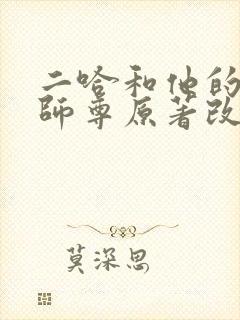 二哈和他的
師尊原著改
莫深思